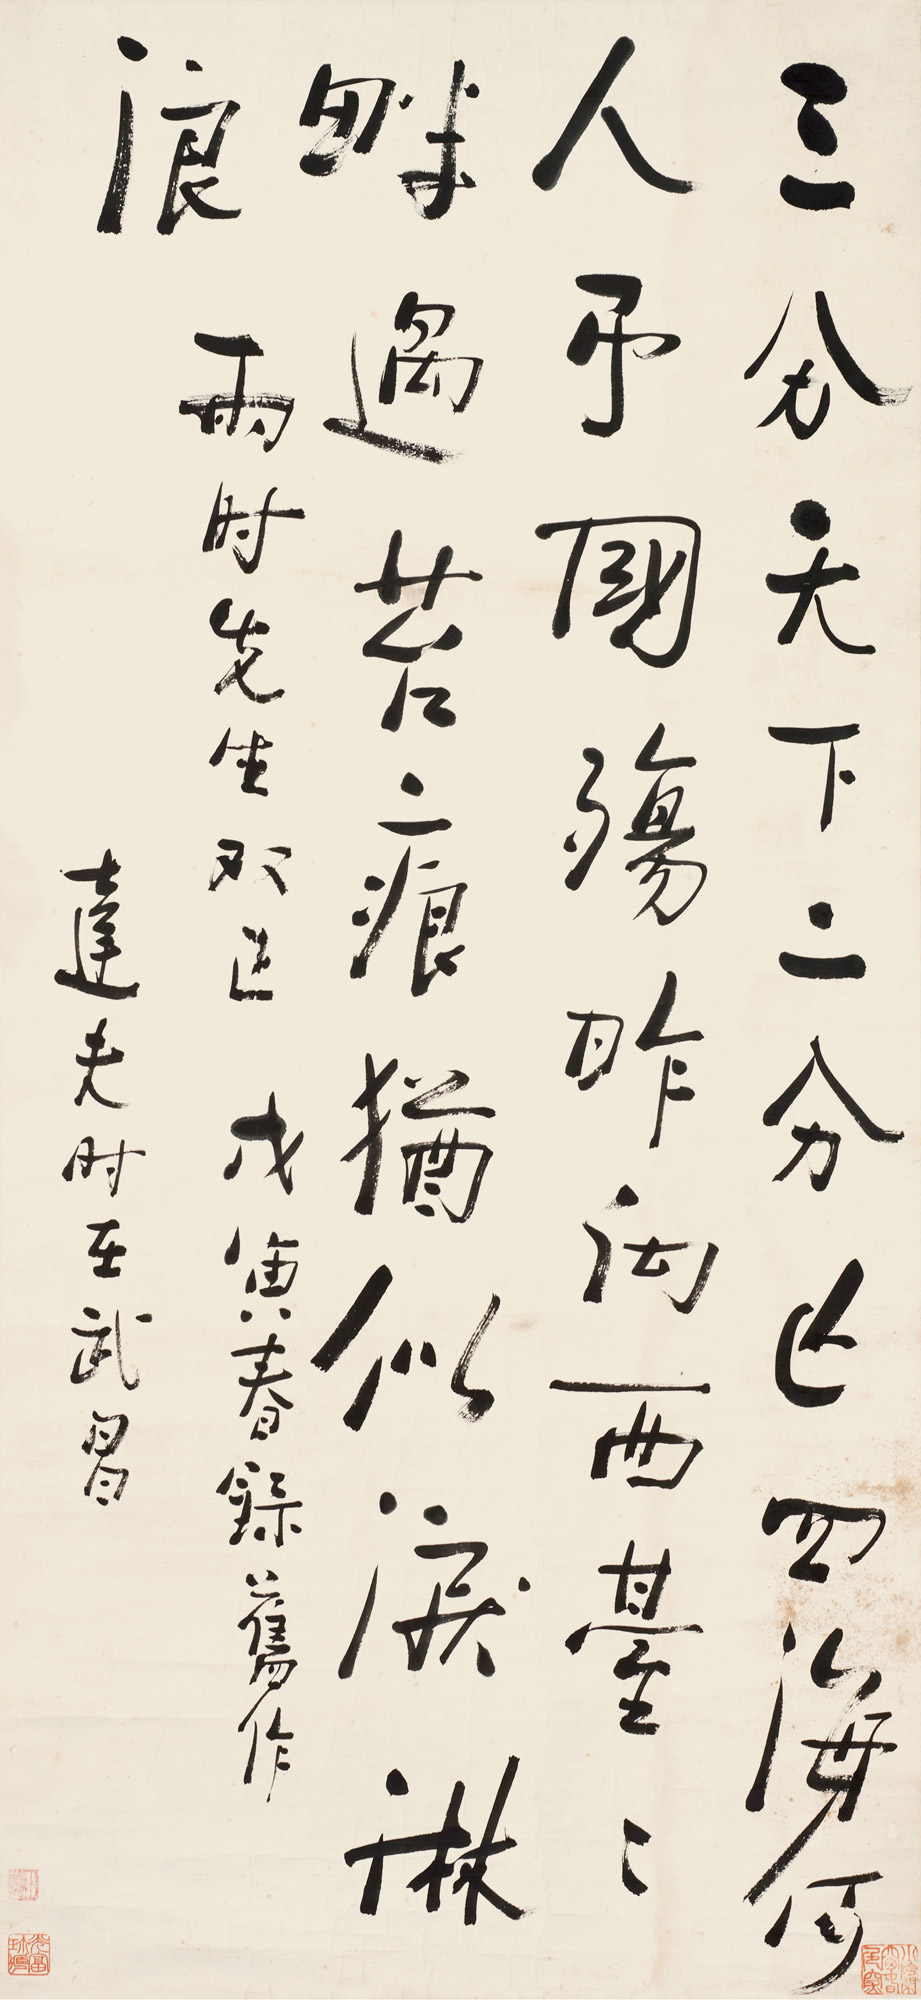 三分天下二分亡四海何
人弔國殤昨向西臺〻
畔過苔痕猶似淚淋
浪 雨时先生双正 戊寅春錄舊作
達夫时在武昌